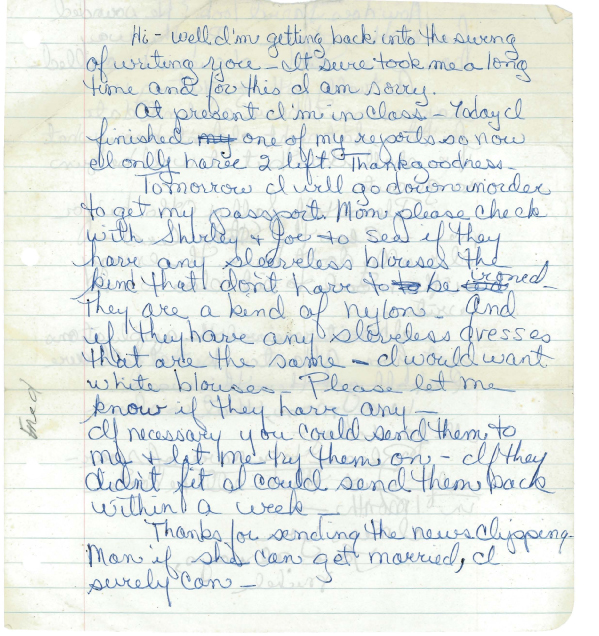 Hi - well I'm getting back into the swing
of writing you - It sure took me a long
time and for this I am sorry.
At present I'm in class - Today I
finished my one of my reports so now
I only have 2 left. Thank goodness -
Tomorrow I will go down in order
to get my passport. Mom please check
with Shirley + Joe to see if they
have any sleeveless blouses the
kind that don't have to be ironed -
They are a kind of nylon. And
if they have any sleveless dresses
that are the same - I would want
white blouses - Please let me
know if they have any -
If necessary you could send them to
me + let me try them on - If they
didn't fit I could send them back
within a week -
Thanks for sending the news clipping -
Man if she can get married, I
surely can -